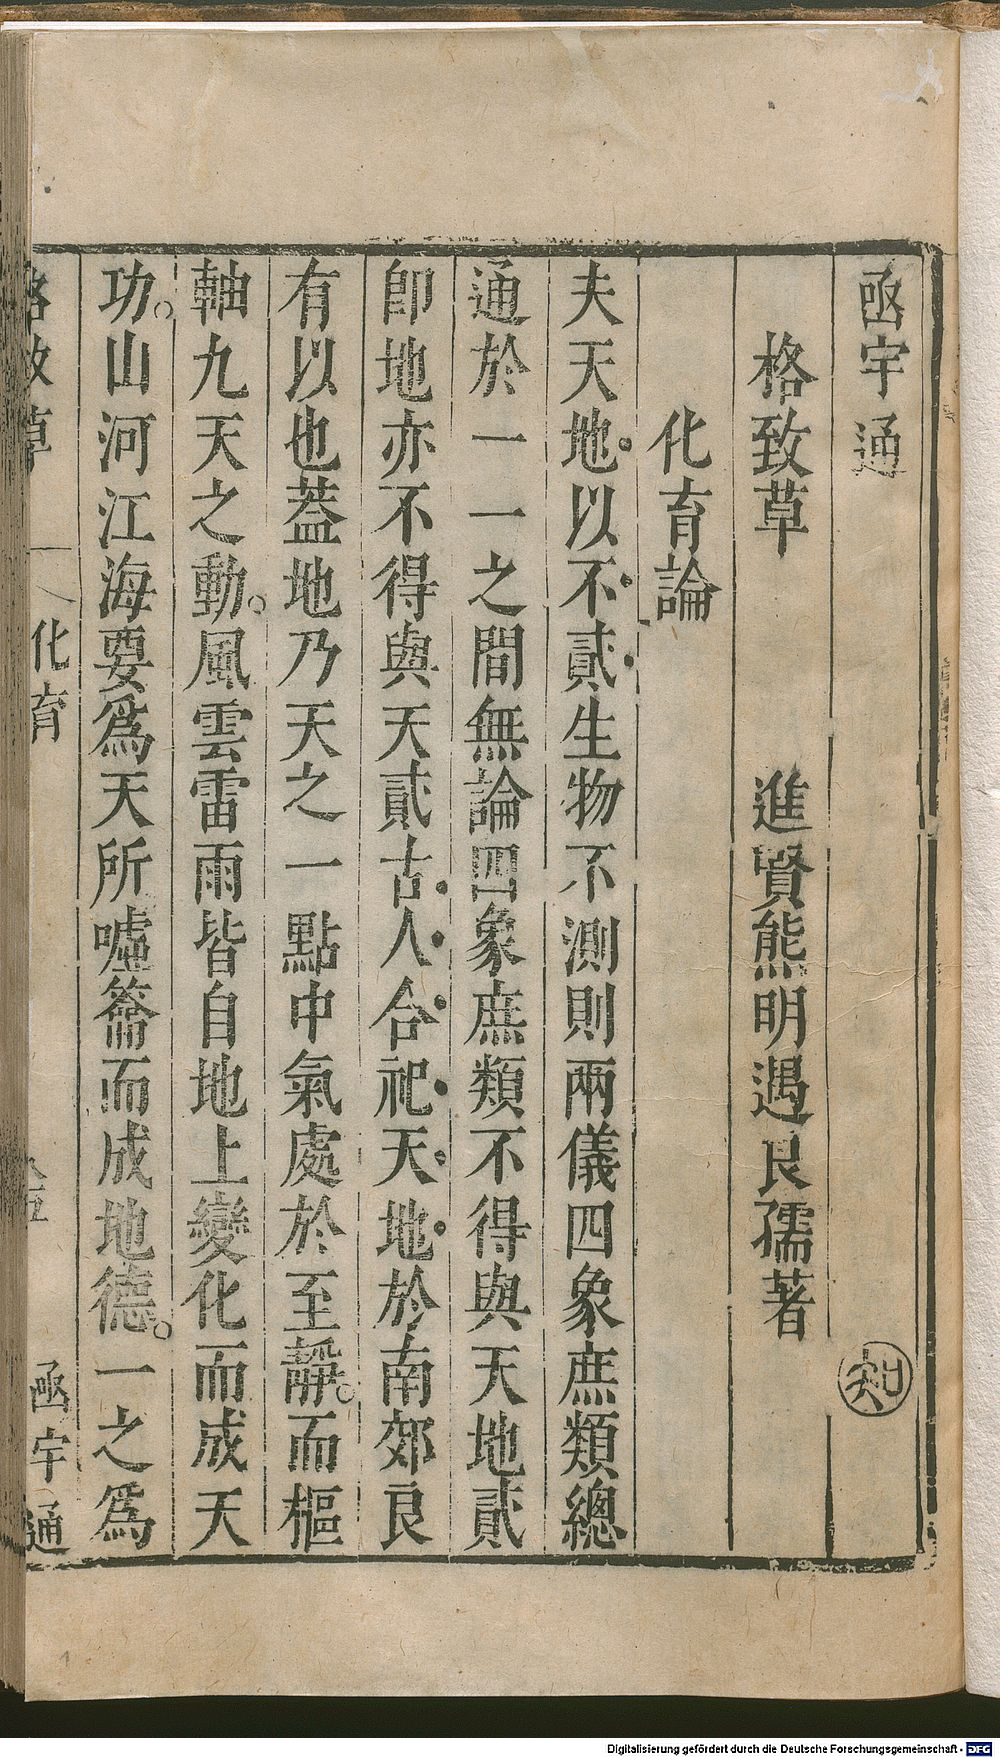 函宇通
知
格致草　進賢熊明遇良孺著
化育論
夫天地以不貳生物不測則兩儀四象庶類總
通於一一之間無論四象庶類不得與天地貳
卽地亦不得與天貳古人合祀天地於南郊良
有以也葢地乃天之一點中氣處於至靜而樞
軸九天之動風雲雷雨皆自地上變化而成天
功山河江海要爲天所噓籥而成地德一之爲
格致草　化育　函宇通
Digitalisierung gefördert durch die Deutsche Forschungsgemeinschaft - DFG